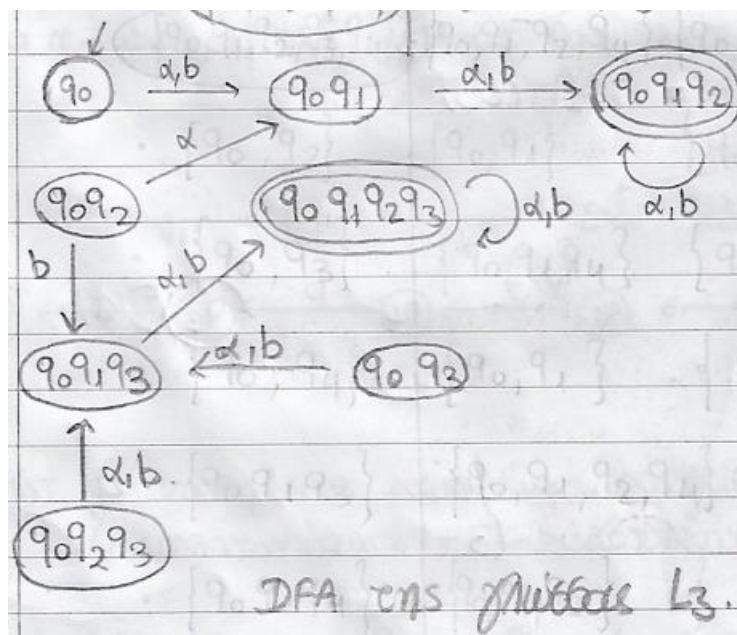 q0 α,b q0q1 α,b q0q1q2
α
q0q2 q0q1q2q3 α,b α,b
b α,b
q0q1q3 α,b q0q3
α,b.
q0q2q3
DFA της γλώσσας L3.